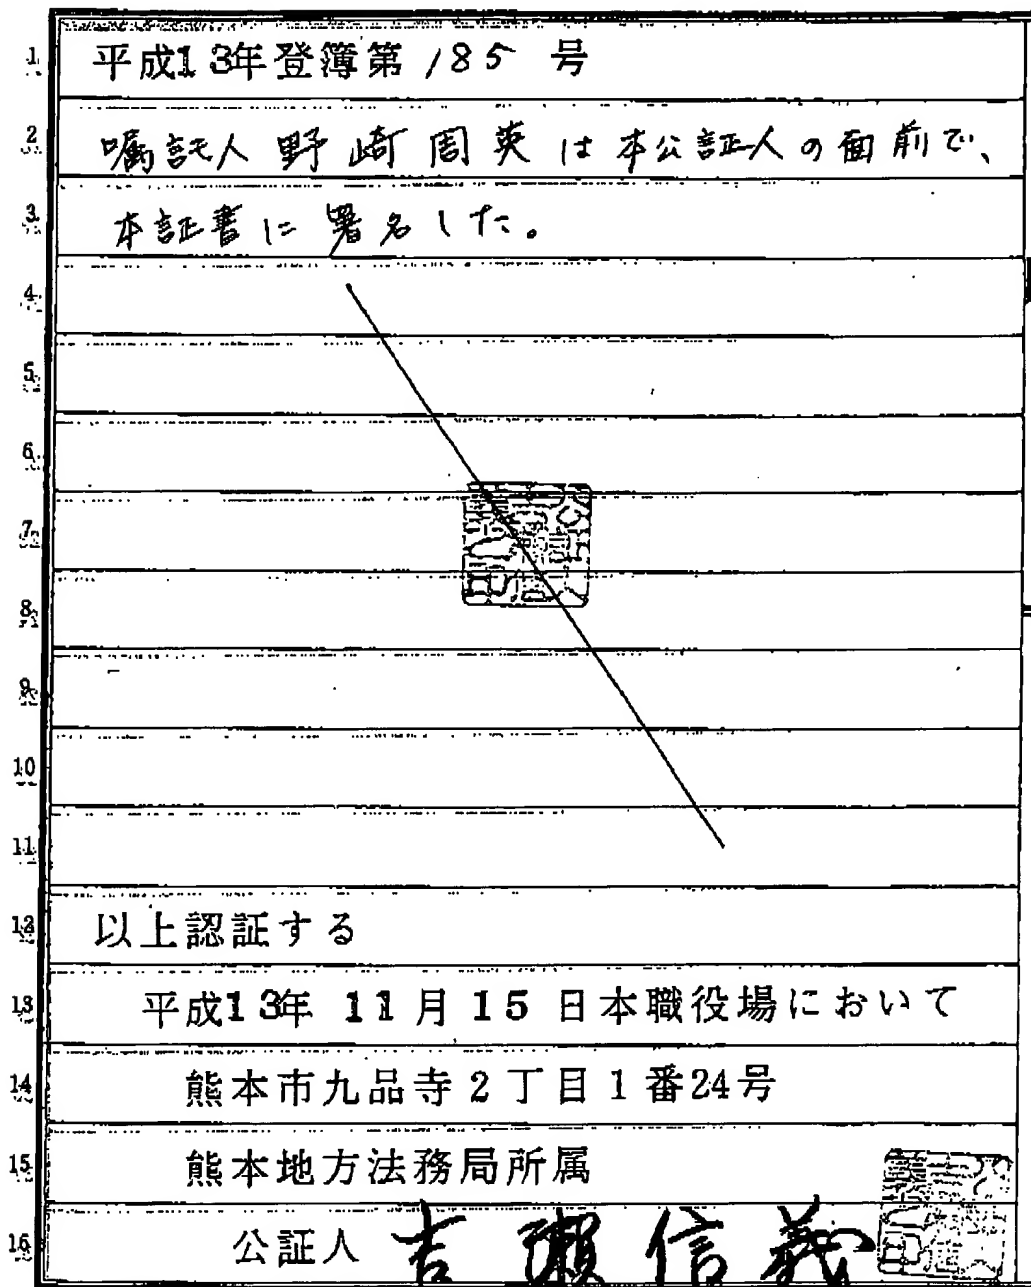 1 平成13年登簿第185号
2 嘱託人 野崎周英は本公証人の面前で、
3 本証書に署名した。
4
5
6
7
8
9
10
11
12 以上認証する
13 平成13年 11月 15日本職役場において
14 熊本市九品寺2丁目1番24号
15 熊本地方法務局所属
16 公証人 吉瀬信義